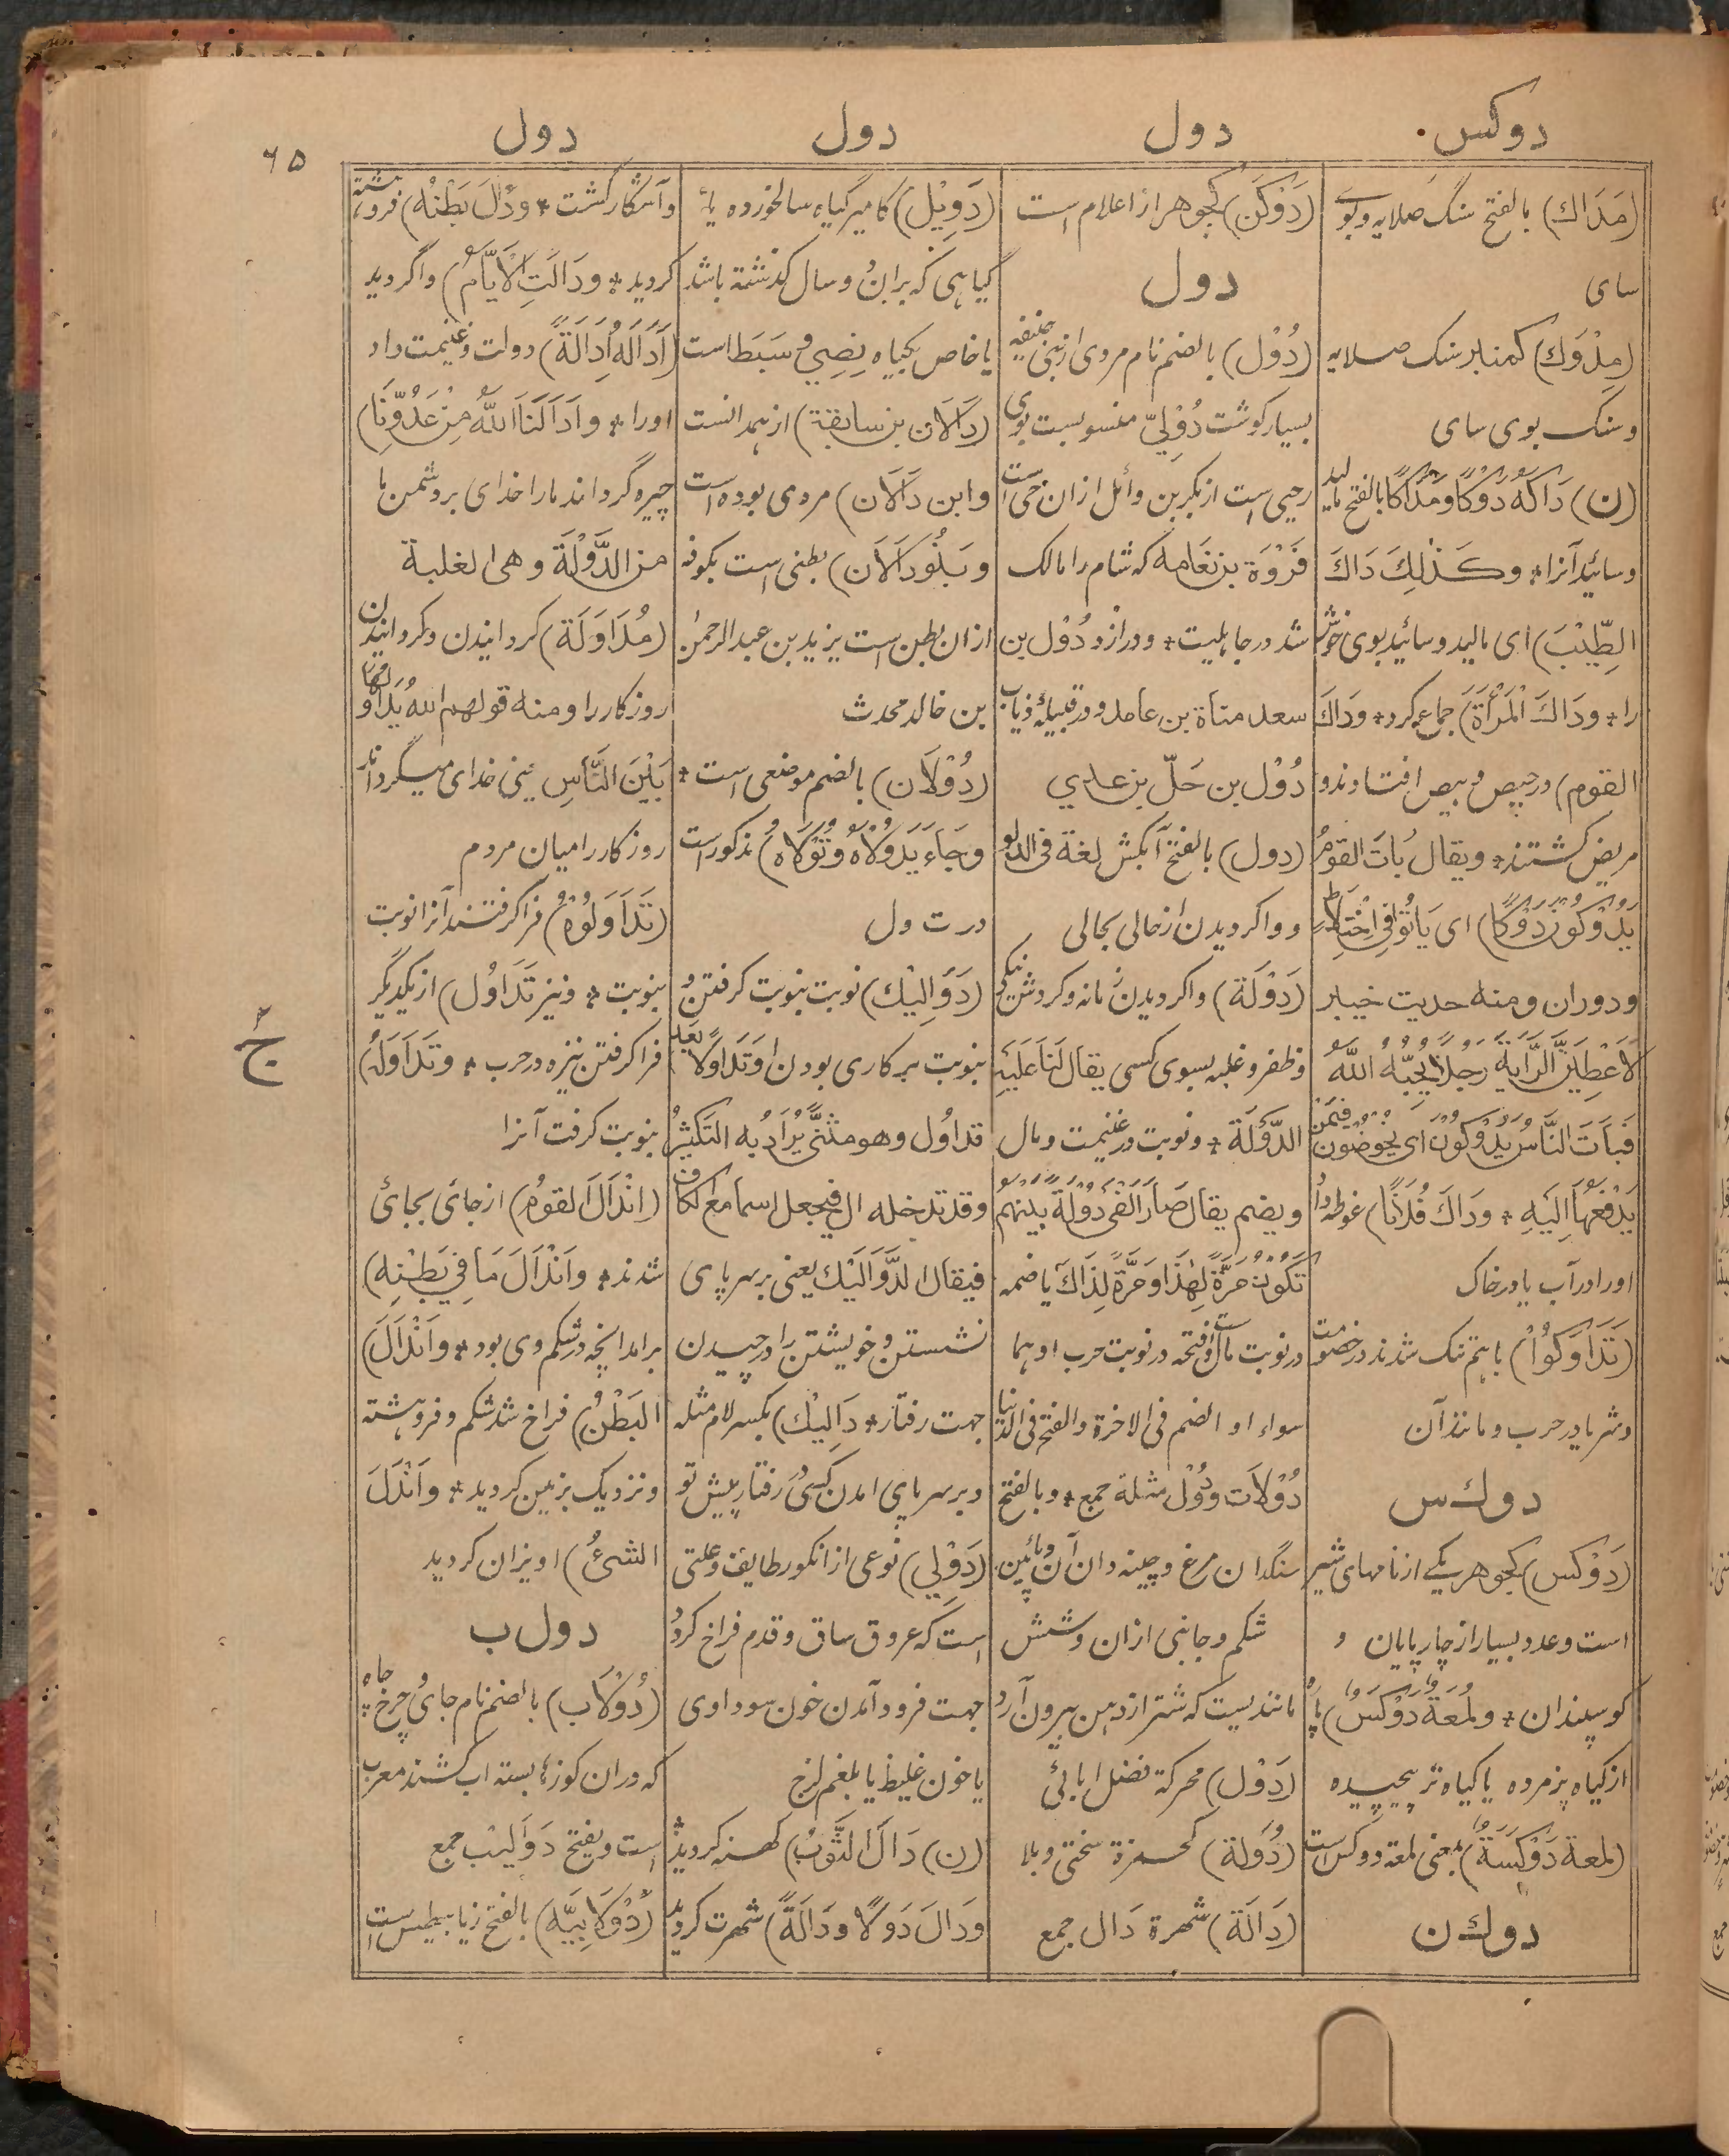 دوکس
دول
دول
دول
۶۵
(مَدَاك) بالفتح سنگ صلایه و بوی
سای
(مِدْوَك) کمنبر سنک صلایه
و سنک بوی سای
(ن) دَاكَهُ دَوْكًا و مَدَاكًا بالفتح مالید
و سائید آنرا * و كَذٰلِكَ دَاكَ
الطِّيْبَ) ای مالید و سائید بوی خوش
را * و دَاكَ الْمَرْأَةَ) جماع کرد * و دَاكَ
القوم) در حیص و بیص افتادند و
مریض کشتند * و یقال بَاتَ القومُ
يَدُوْكُوْنَ دَوْكًا) ای يَاتُوْا فِي اخْتِلَاطٍ
و دوران و منه حدیث خیبر
لَأُعْطِيَنَّ الرَّايَةَ رَجُلًا يُحِبُّهُ اللّٰهُ
فَبَاتَ النَّاسُ يَدُوْكُوْنَ ای يَخُوْضُوْنَ فِيْمَنْ
يَدْفَعُهَا اِلَيْهِ * و دَاكَ فُلَانًا) غوطه داد
اورا در آب یا در خاک
(تَدَاوَكُوْا) باهم تنک شدند در خصومت
و شر یا در حرب و مانند آن
دوك س
(دَوْكَس) کجوهر یکے از نامهای شیر
است و عدد بسیار از چارپایان و
کوسپندان * و لُمْعَةٌ دَوْكَسٌ) پارۀ
از کیاه پژمرده یا کیاه تر پیچیده
(لمعة دَوْكَسَةٌ) بمعنی لمعه دوکس است
دوك ن
(دَوْكَن) کجوهر از اعلام است
دول
(دُوْل) بالضم نام مردی از بنی حنیفه
بسیار کوشت دُوْلِيّ منسوبست بوی
و حیی است از بکر بن وائل ازان حی است
فَرْوَة بن نَعَامه که شام را مالک
شد در جاهلیت * و در ازد دُوْل بن
سعد مناة بن عامد و در قبیلۀ ذباب
دُوْل بن حَلّ بن عدي
(دول) بالفتح آبکش لغة فی الدلو
و واکردیدن از حالی بحالی
(دَوْلَة) واکردیدن زمانه و کردش نیکی
و ظفر و غلبه بسوی کسی یقال لَنَا عَلَيْهِ
الدَّوْلَة * و نوبت در غنیمت و مال
و یضم یقال صَارَ الْفَيْءُ دُوْلَةً بَيْنَهُمْ
تَكُوْنُ مَرَّةً لِهٰذَا وَ مَرَّةً لِذَاكَ یا ضمه
در نوبت مال است و فتحه در نوبت حرب او هما
سواء او الضم فی الاخرة والفتح فی الدنیا
دُوْلَات و دُوَل مثلثة جمع * و بالفتح
سنگدان مرغ و چینه دان آن و پائین
شکم و جانبی ازان و شش
مانندیست که شتر از دهن بیرون آرد
(دَوَل) محرکة نضل ابائی
(دُوَلَة) کهمزة سختی و بلا
(دَالَة) شهرة دَال جمع
(دَوِيْل) کامیر گیاه سالخورده یا
گیاهی که بران دو سال کذشته باشد
یا خاص بکیاه نصي و سَبَط است
(دَالَان بن سابقة) از همدانست
و ابن دَالَان) مردی بوده است
و بَنُو دَالَان) بطنی است بکوفه
ازان بطن است یزید بن عبدالرحمن
بن خالد محدث
(دُوْلَان) بالضم موضعی است *
و جَاءَ بِدُوَلَاهُ وَ تُوَلَاهُ) مذکور است
در ت ول
(دَوَالَيْك) نوبت بنوبت کرفتن و
بنوبت بر کاری بودن اَوْ تَدَاوُلًا بَعْدَ
تداوُل و هو مثنًّى يُرَادُ به التكثيرُ
و قد تدخله ال فیجعل اسما مع الکاف
فیقال الدَّوَالَيْك یعنی بر سر پای
نشستن و خویشتن را در چیدن
جهت رفتار * دَالِيْك) بکسر لام مثله
و بر سر پای امدن کسی رفتار پیش تو
(دَوَّلِي) نوعی از انکور طایف و علتی
است که عروق ساق و قدم فراخ کردد
جهت فرود آمدن خون سوداوی
یا خون غلیظ یا بلغم لزج
(ن) دَالَ الثَّوْبُ) کهنه کردید
و دَالَ دَوْلًا و دَالَةً) شهرت کردید
و آشکار کشت * و دَالَ بَطْنُهُ) فروهشته
کردید * و دَالَتِ الْاَيَّامُ) واگردید
(اَدَالَهُ اِدَالَةً) دولت و غنیمت داد
اورا * و اَدَالَنَا اللّٰهُ مِنْ عَدُوِّنَا)
چیره گرداند مارا خدای بر دشمن ما
من الدَّوْلَة و هی الغلبة
(مُدَاوَلَة) کردانیدن و کردانیدن
روزکار را و منه قولهم اللّٰهُ يُدَاوِلُهَا
بَيْنَ النَّاسِ یعنی خدای میگرداند
روزکار را میان مردم
(تَدَاوَلُوْهُ) فراکرفتند آنرا نوبت
بنوبت * و نیز تَدَاوُل) از یکدیگر
فراکرفتن نیزه در حرب * و تَدَاوَلَهُ)
بنوبت کرفت آنرا
(اِنْدَالَ القومُ) از جائی بجائی
شدند * وَ انْدَالَ مَا فِي بَطْنِهِ)
برامد انچه در شکم وی بود * وَ انْدَالَ)
البَطْنُ) فراخ شد شکم و فروهشته
و نزدیک بزمین کردید * وَ انْدَالَ
الشئُ) اویزان کردید
دول ب
(دُوْلَاب) بالضم نام جائی و چرخ چاه
که دران کوزها بسته آب کشند معرب
است و یفتح دَوَالِيْب جمع
(دُوْلَابِيَّه) بالفتح زیابیطس است
ج